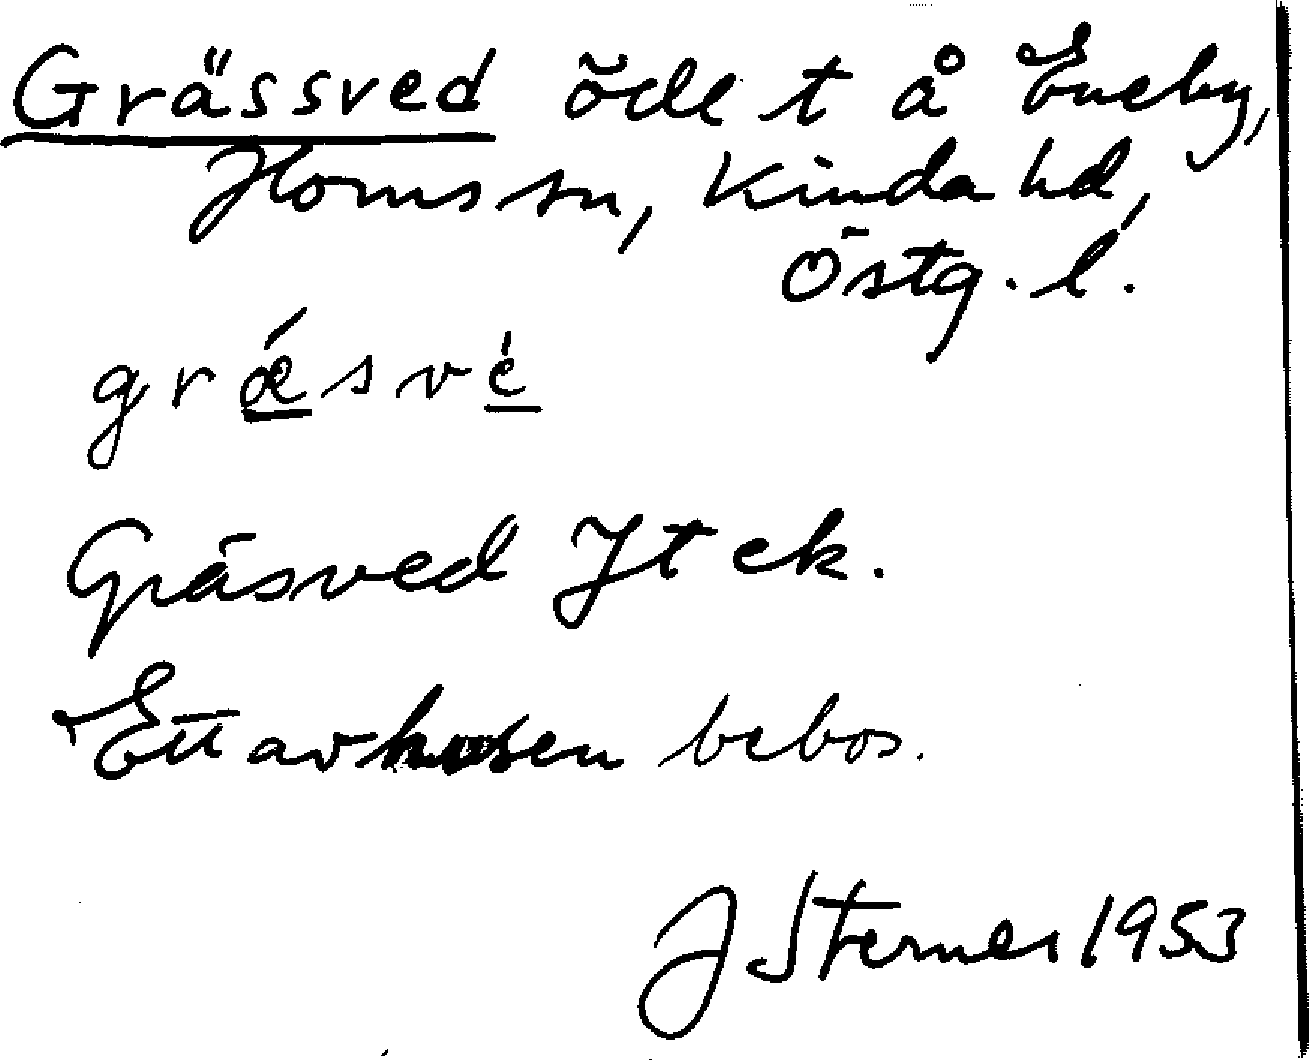 Grässved ödel t å Eneby,
Horns sn, Kinda hd,
Östg. l.
grǽsvé
Gräsved Jt ek.
Ett av husen bebos.
J Sterner 1953